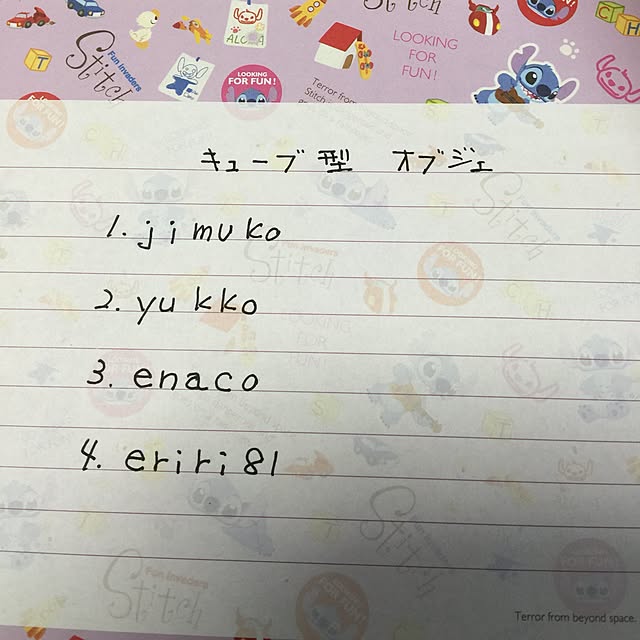 Stitch
Fun Invaders
T
ALOHA
LOOKING
FOR FUN!
Terror from
Stitch
LOOKING
FOR
FUN!
C
H
キューブ型 オブジェ
1. jimuko
2. yukko
3. enaco
4. eriri81
Stitch
Fun Invaders
Terror from beyond space.